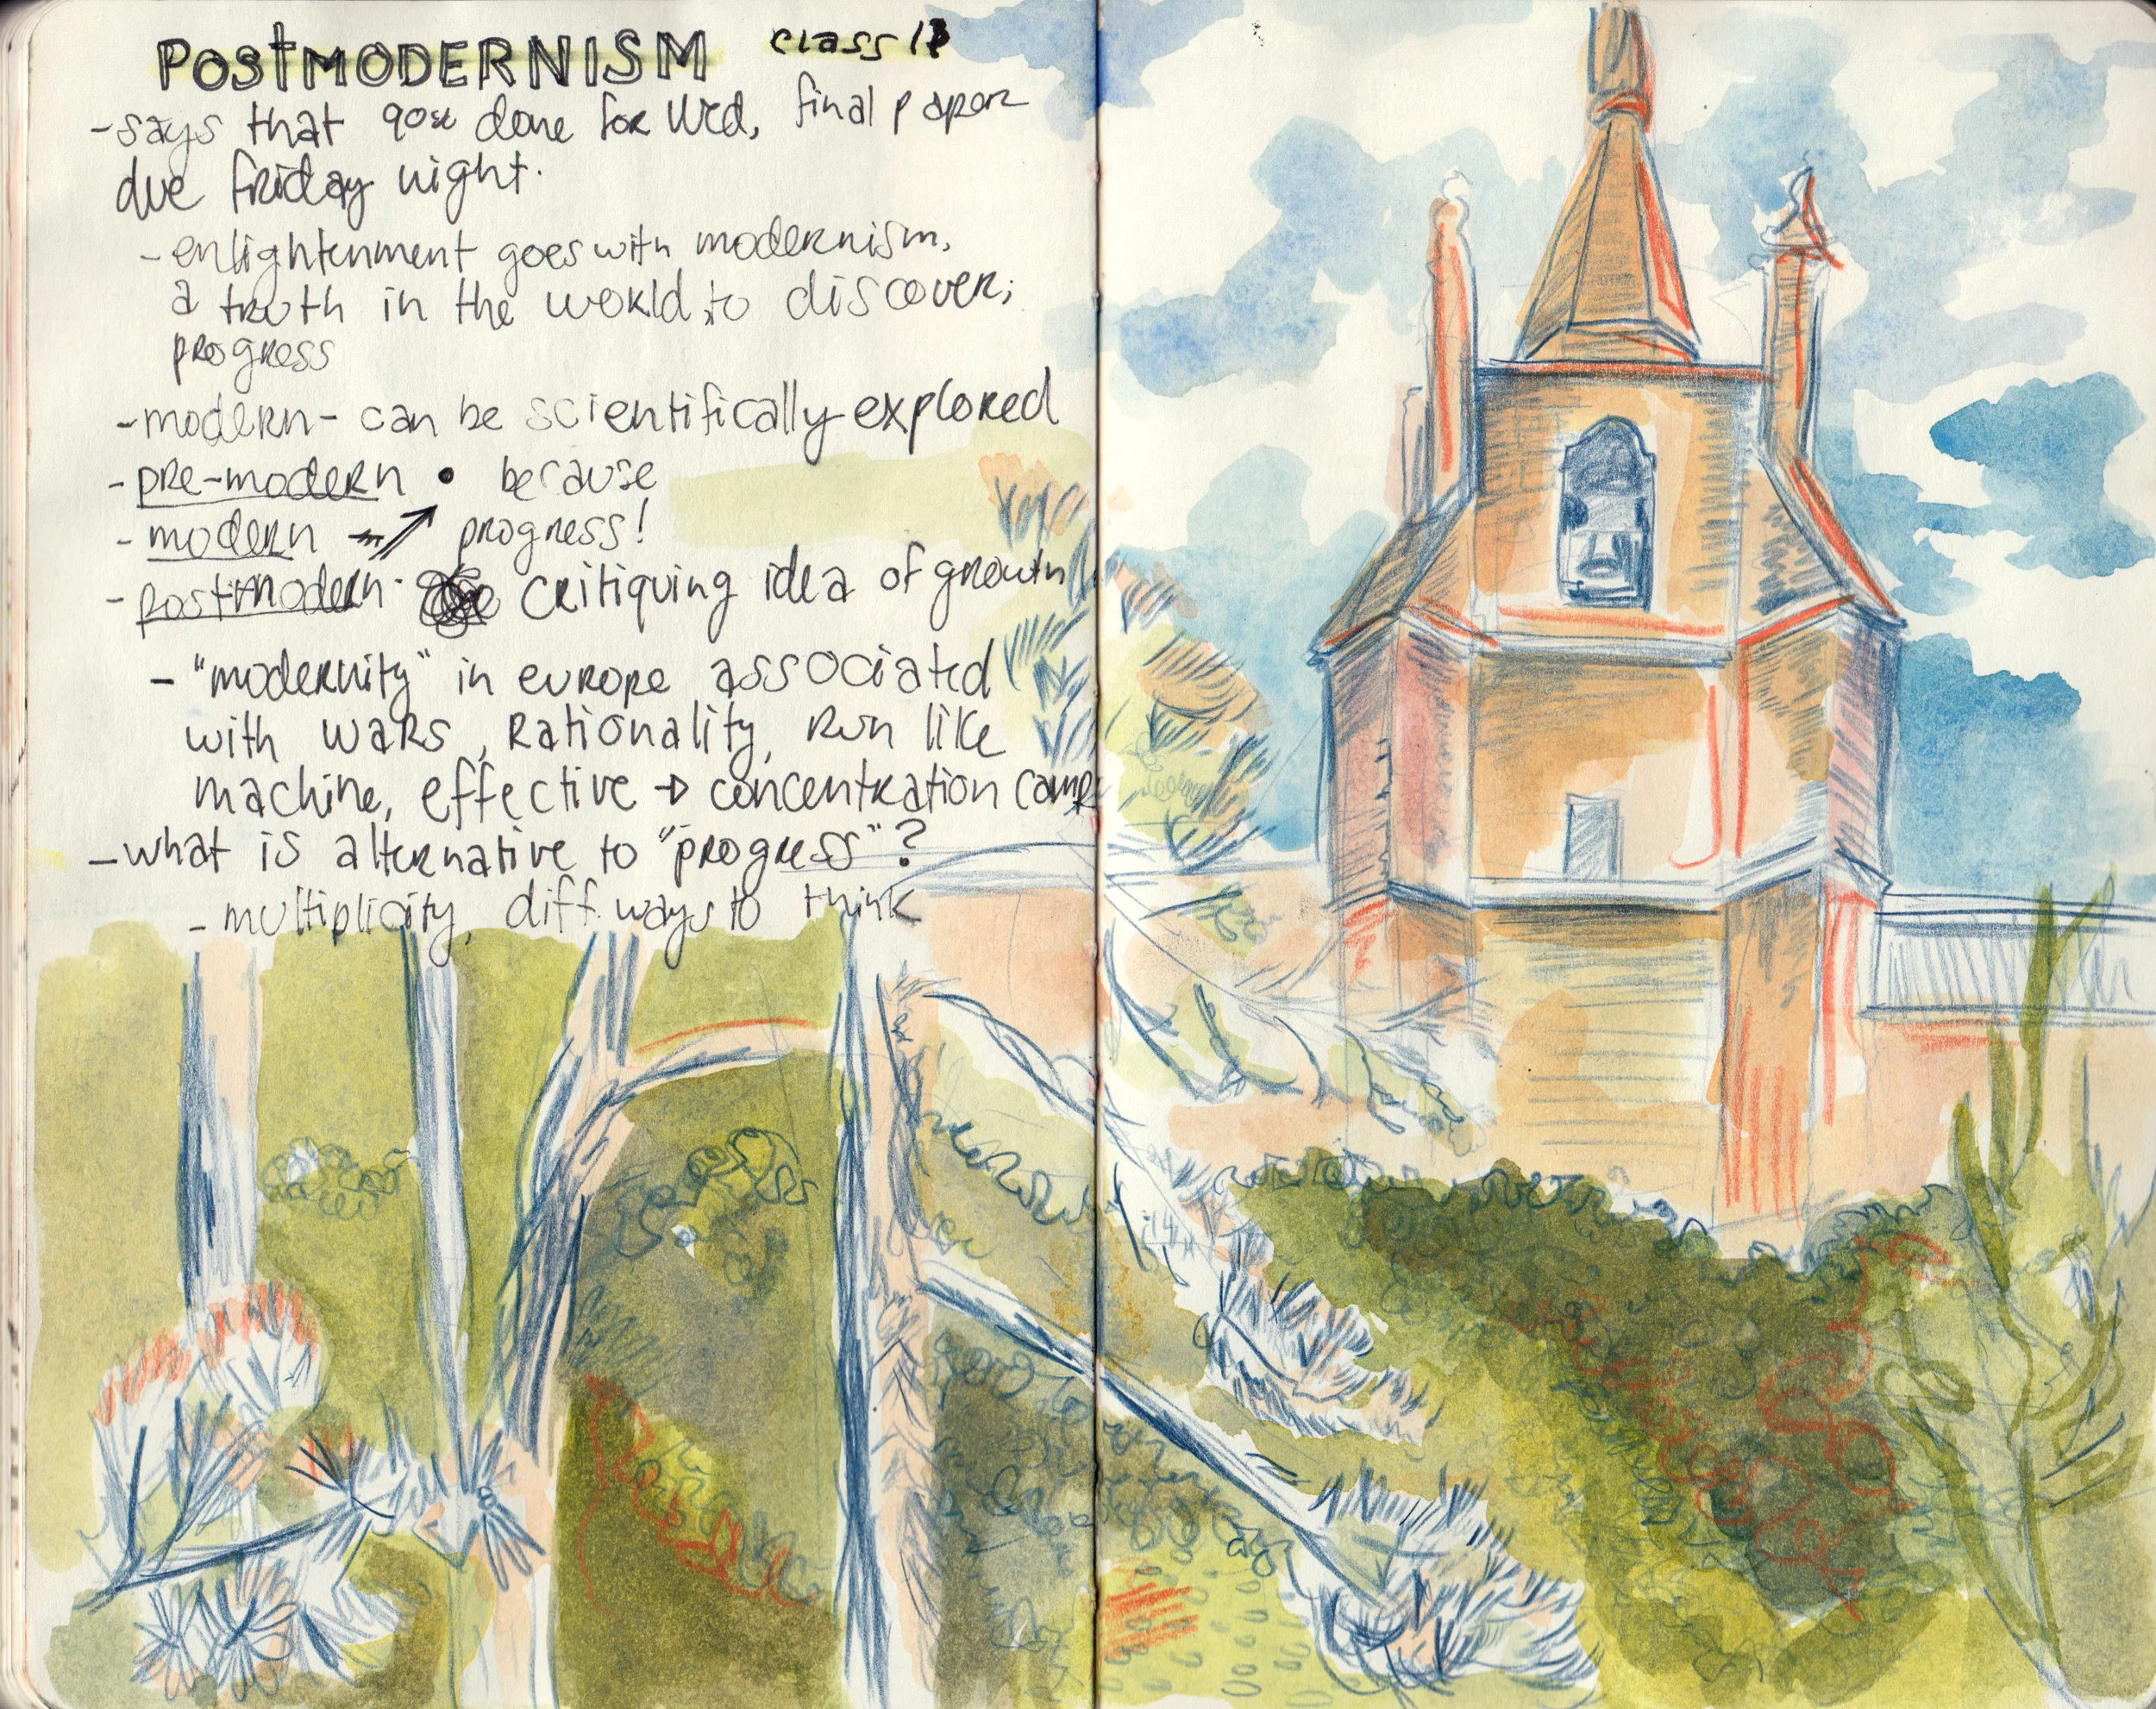 POSTMODERNISM class 13
-says that 90% done for Wed, final paper
due friday night.
-enlightenment goes with modernism,
a truth in the world, to discover;
progress
-modern- can be scientifically explored
-pre-modern • because
-modern → progress!
-postmodern- critiquing idea of growth
-"modernity" in europe associated
with wars, rationality, run like
machine, effective → concentration camps
-what is alternative to "progress"?
-multiplicity, diff. ways to think